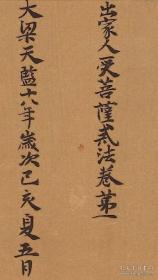 出家人受菩薩戒法卷第一
大梁天監十八年歲次己亥夏五月